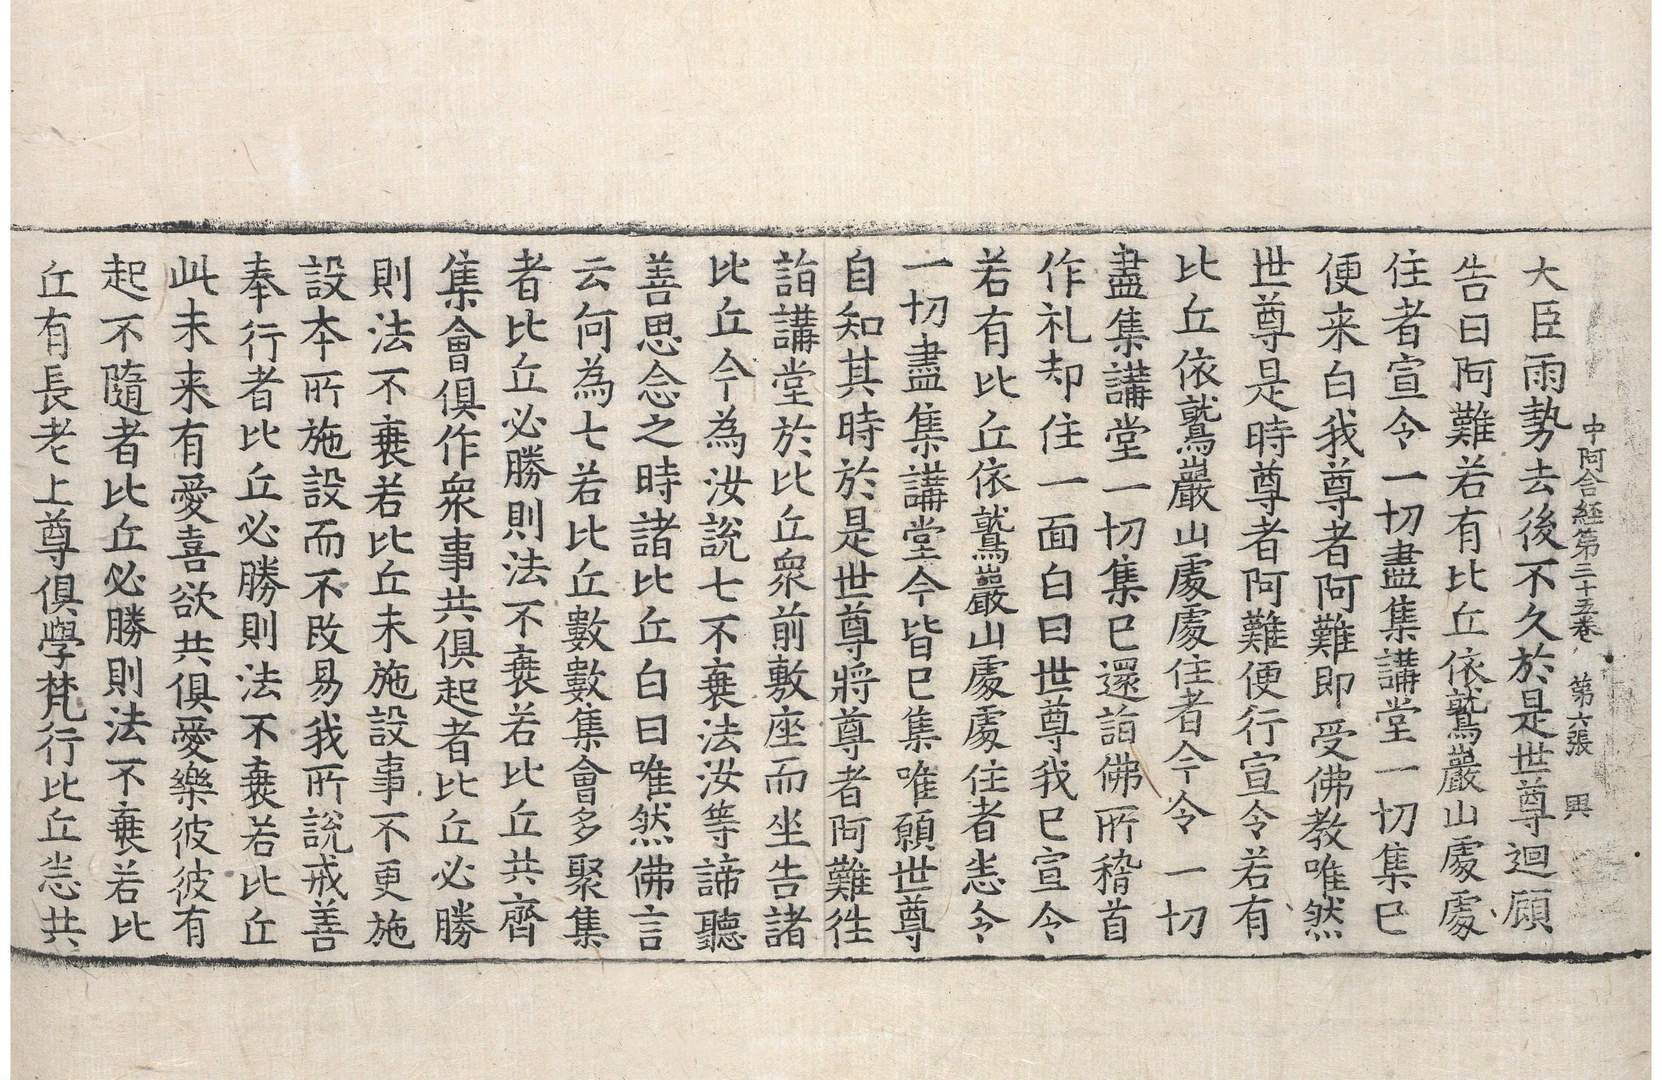 中阿含經第三十五卷 第六張 興
大臣雨勢去後不久於是世尊迴顧
告曰阿難若有比丘依鷲巖山處處
住者宣令一切盡集講堂一切集已
便来白我尊者阿難即受佛教唯然
世尊是時尊者阿難便行宣令若有
比丘依鷲巖山處處住者今令一切
盡集講堂一切集已還詣佛所稽首
作礼却住一面白曰世尊我已宣令
若有比丘依鷲巖山處處住者悉令
一切盡集講堂今皆已集唯願世尊
自知其時於是世尊將尊者阿難往
詣講堂於比丘衆前敷座而坐告諸
比丘今為汝說七不衰法汝等諦聽
善思念之時諸比丘白曰唯然佛言
云何為七若比丘數數集會多聚集
者比丘必勝則法不衰若比丘共齊
集會俱作衆事共俱起者比丘必勝
則法不衰若比丘未施設事不更施
設本所施設而不改易我所說戒善
奉行者比丘必勝則法不衰若比丘
此未来有愛喜欲共俱愛樂彼彼有
起不隨者比丘必勝則法不衰若比
丘有長老上尊俱學梵行比丘悉共